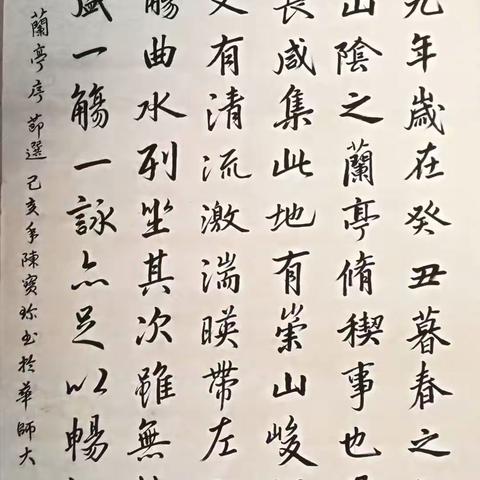 九年歲在癸丑暮春之
山陰之蘭亭脩稧事也
長咸集此地有崇山峻
又有清流激湍暎帶左
觴曲水列坐其次雖無
盛一觴一詠亦足以暢
蘭亭序節選己亥年陳寶珍書於華師大